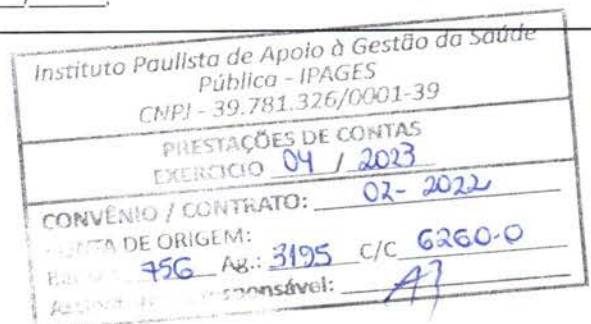 Instituto Paulista de Apoio à Gestão da Saúde
Pública - IPAGES
CNPJ - 39.781.326/0001-39
PRESTAÇÕES DE CONTAS
EXERCICIO 04 / 2023
CONVÊNIO / CONTRATO: 02- 2022
DE ORIGEM:
756 Ag.: 3195 C/C 6260-0